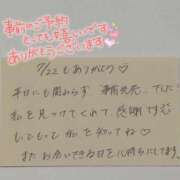 事前ご予約
とっても嬉しいです
ありがとうございます
7/22もありがとう♡
平日にも関わらず 事前発売…でした
私を見つけてくれて 感謝です
もっともっと 私を知ってね♡
また お会いできる日を 心待ちにしてます